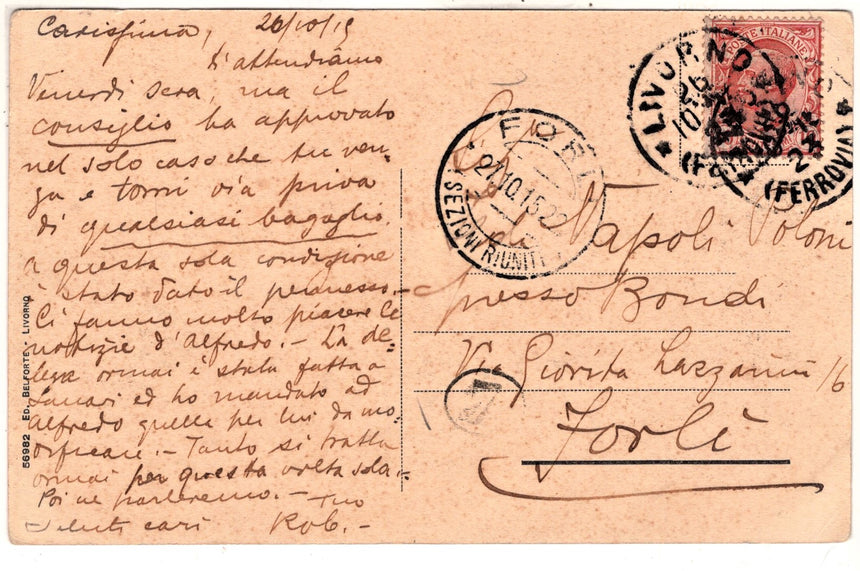 Carissima, 26/10/15
t'attendiamo
Venerdì sera, ma il
consiglio ha approvato
nel solo caso che tu ven-
ga e torni via priva
di qualsiasi bagaglio.
a questa sola condizione
è stato dato il permesso.-
Ci fanno molto piacere le
notizie d'Alfredo. - La de-
lega ormai è stata fatta a
ed ho mandato ad
Alfredo quella per lui da mo-
dificare. - Tanto si tratta
ormai per questa volta sola.-
Poi ne parleremo. - Tuo
Saluti cari Rob.-
56982 ED. BELFORTE - LIVORNO
POSTE ITALIANE
LIVORNO
26
10
(FERROVIA)
FORLI
27.10.15.22
(SEZIONI RIUNITE
Napoli Poloni
presso Bondi
Via Giorita Lazzarini 16
Forlì